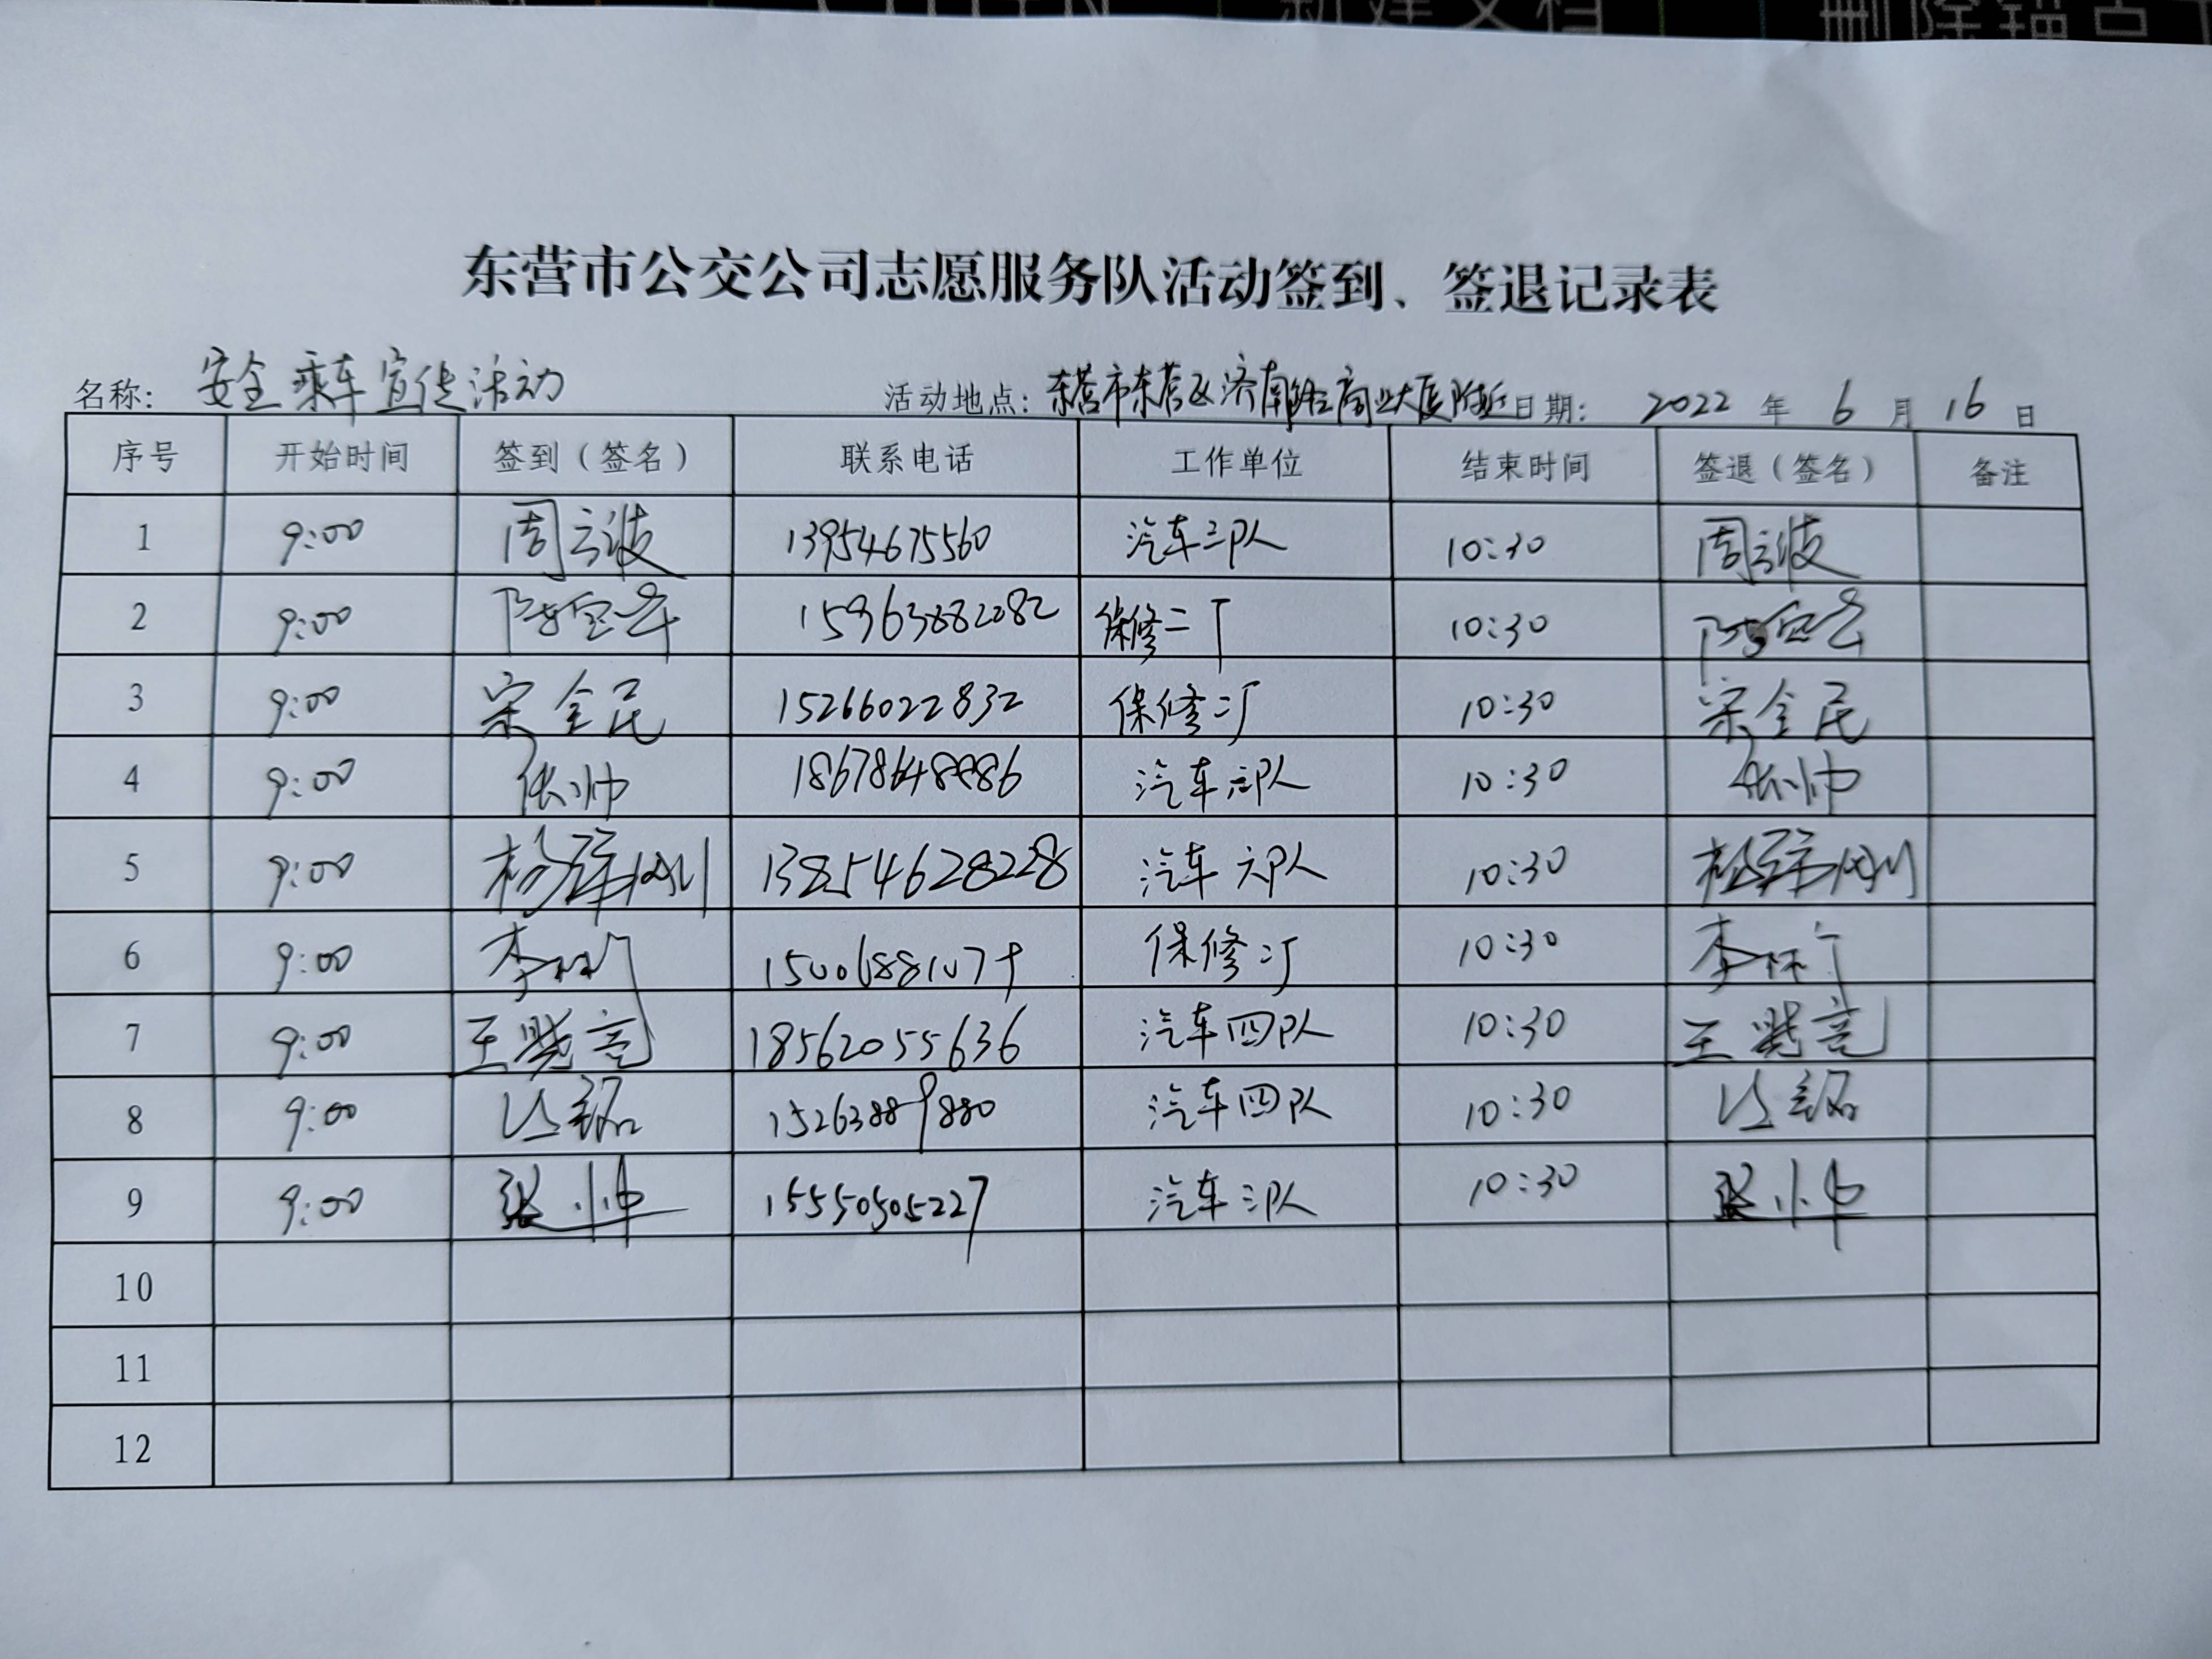 新建文档
删除锚古
东营市公交公司志愿服务队活动签到、签退记录表
名称: 安全乘车宣传活动 活动地点: 东营市东营区济南路商业大厦附近 日期: 2022 年 6 月 16 日
序号 开始时间 签到(签名) 联系电话 工作单位 结束时间 签退(签名) 备注
1 9:00 周云波 13954675560 汽车三队 10:30 周云波
2 9:00 15963882082 保修二厂 10:30
3 9:00 宋全民 15266022832 保修二厂 10:30 宋全民
4 9:00 张帅 18678648886 汽车 队 10:30 张帅
5 9:00 杨军刚 13854628228 汽车六队 10:30 杨军刚
6 9:00 李 15006881079 保修二厂 10:30 李
7 9:00 王晓亮 18562055636 汽车四队 10:30 王晓亮
8 9:00 15263889880 汽车四队 10:30
9 9:00 张小帅 15550505227 汽车三队 10:30 张小帅
10
11
12